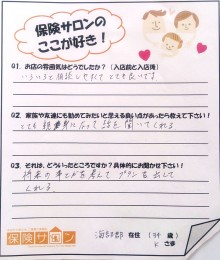 保険サロンの
ここが好き！
Q1. お店の雰囲気はどうでしたか？〔入店前と入店後〕
いろいろと相談しやすくてとても良いです
Q2. 家族や友達にも勧めてみたいと思える良い点があったら教えて下さい！
とても親身になって話を聞いてくれる
Q3. それは、どういったところですか？具体的にお聞かせ下さい！
将来の事とかを考えてプランを出して
くれる
保険サロン
海部郡 在住 （34 歳）
K さま